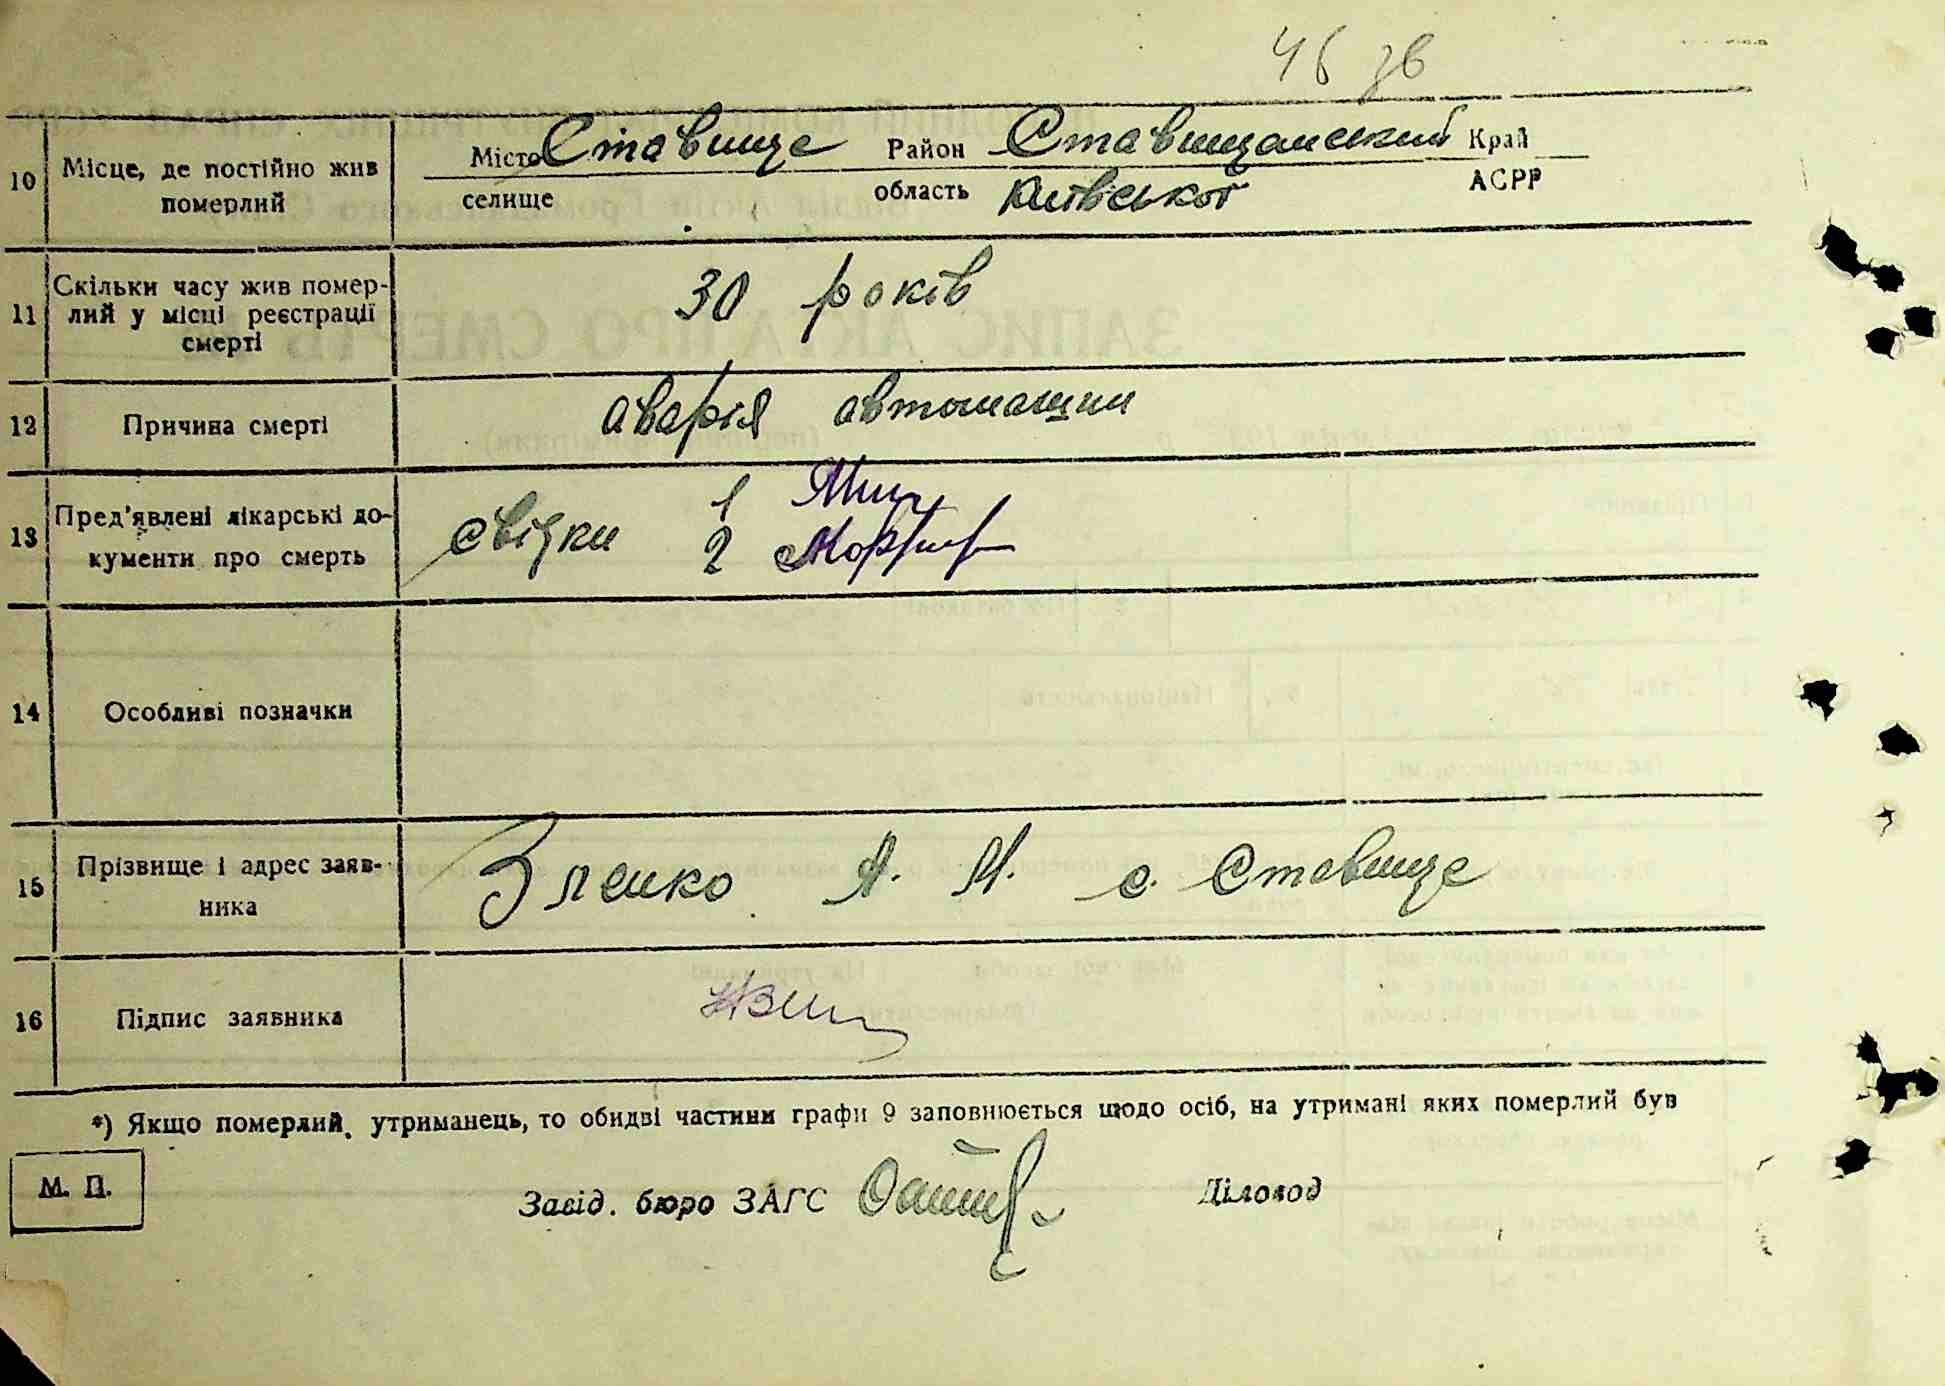 46 зв
10 Місце, де постійно жив померлий Місто Ставище Район Ставищанський Край
селище область Київської АСРР
11 Скільки часу жив помер-
лий у місці реєстрації
смерті 30 років
12 Причина смерті аварія автомашини
13 Пред'явлені лікарські до-
кументи про смерть свідки 1
2
14 Особливі позначки
15 Прізвище і адрес заяв-
ника Зленко А. М. с. Ставище
16 Підпис заявника
*) Якщо померлий, утриманець, то обидві частини графи 9 заповнюється щодо осіб, на утримані яких померлий був
М. П.
Завід. бюро ЗАГС Діловод